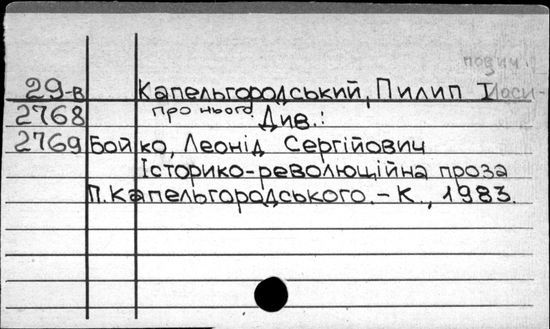 пович.
29-в Капельгородський, Пилип Йоси-
2768 про нього Див.:
2769 Бойко, Леонід Сергійович
Історико-революційна проза
П. Капельгородського. – К., 1983.